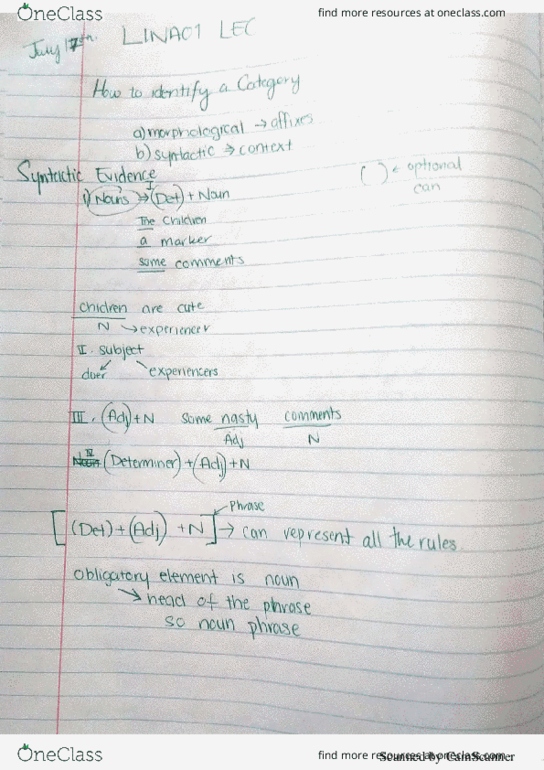 OneClass
find more resources at oneclass.com
July 17th.
LINA01 LEC
How to identify a Category
a) morphological → affixes
b) syntactic → context
( ) ← optional
can
Syntactic Evidence
I
1) Nouns → (Det) + Noun
The Children
a marker
some comments
children are cute
N → experiencer
II. subject
doer experiencers
III. (Adj) + N some nasty comments
Adj N
IV (Determiner) + (Adj) + N
Phrase
[(Det) + (Adj) + N] → can represent all the rules
obligatory element is noun
→ head of the phrase
so noun phrase
OneClass
find more resources at oneclass.com
Scanned by CamScanner